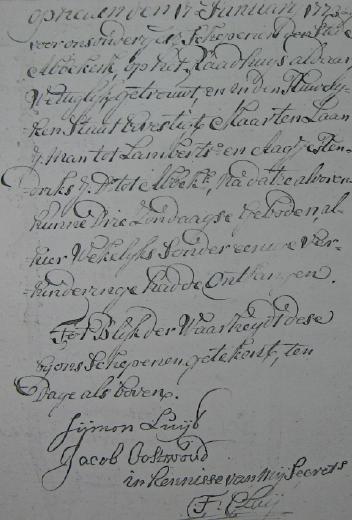 op heuen den 17e Januarij 177
voor ons ondergesz. Schepenen der Stede
Abbekerk, op het Raadhuis aldaar
Wettiglijk getrouwt, en in den Huwely-
ken Staat bevestigt Maarten Laan
J. Man tot Lamberts en Aagje Hen-
driks J. Dr tot Abbekk, Na dat ze alvoren
hunne Drie Zondaagse Geboden, al-
hier Wekelyks Sonder eenige Ver-
hinderinge hadde Ontfangen.
Tot Blyk der Waarheyd is dese
by ons Schepenen getekent, ten
Dage als boven.
Sijmon Luijt
Jacob Oostwoud
in kennisse van Mij Secrets